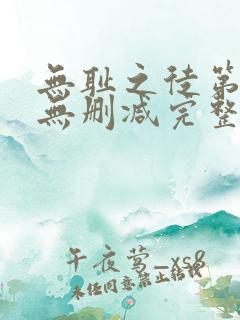 無耻之徒第
無删减完整
午夜莺_xs8
未经同意禁止转载